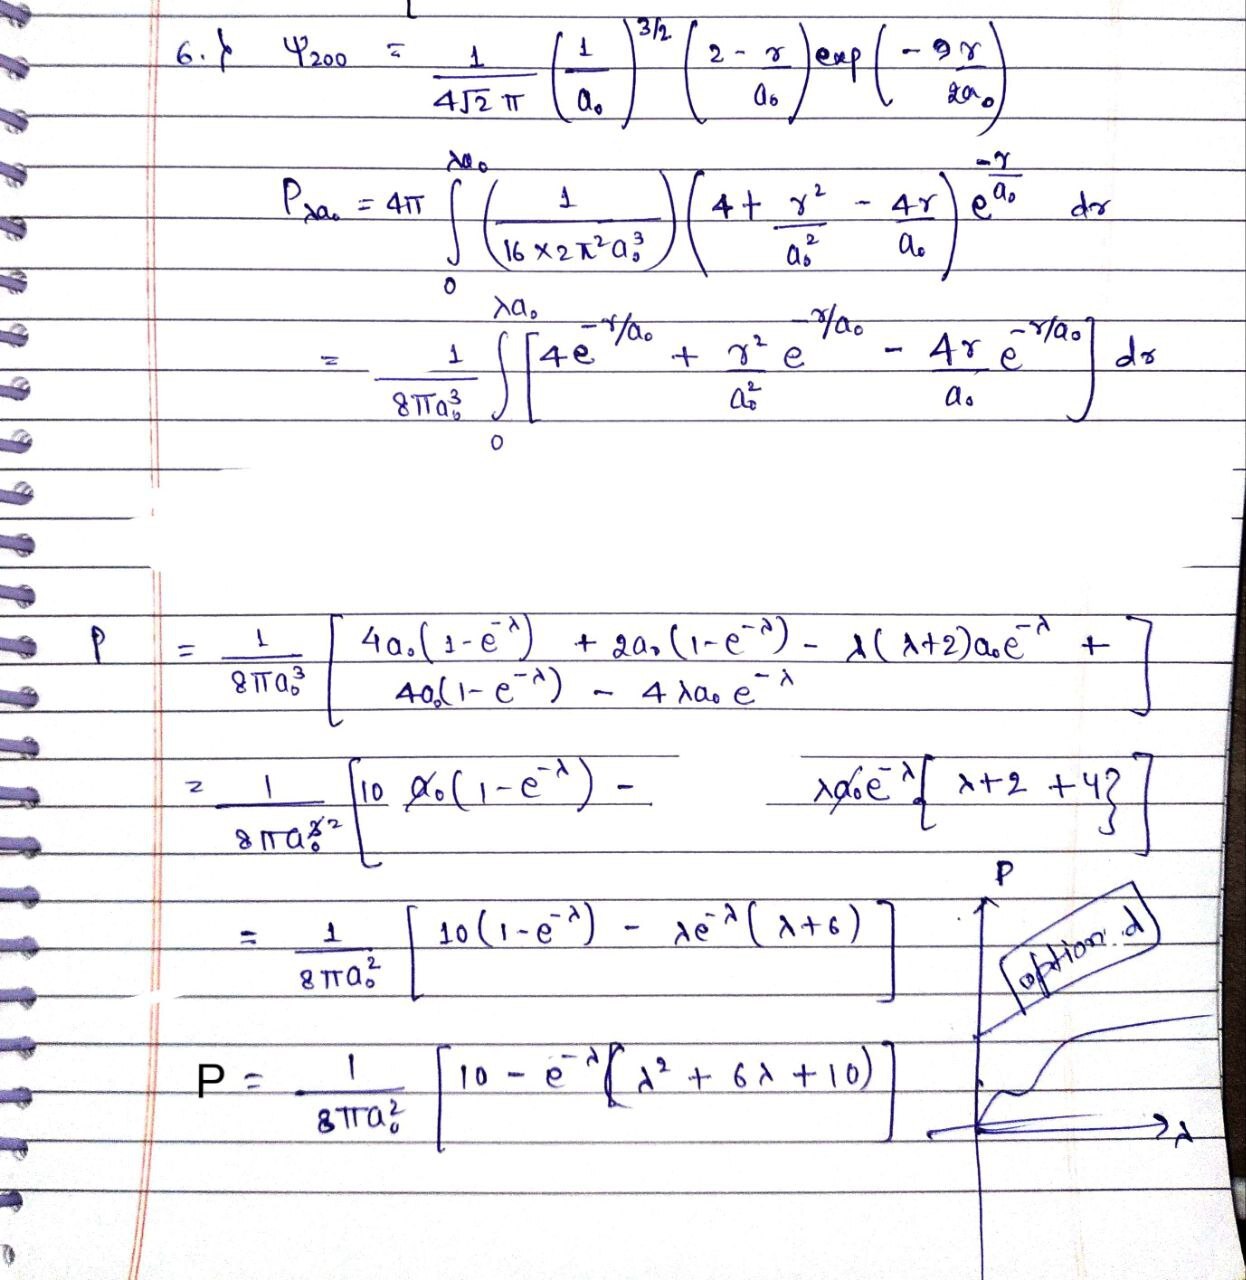 6.} ψ₂₀₀ = 1/(4√2 π) (1/a₀)^(3/2) (2 - r/a₀) exp(-9r/2a₀)
P_λa₀ = 4π ∫₀^(λa₀) (1/(16×2π²a₀³)) (4 + r²/a₀² - 4r/a₀) e^(-r/a₀) dr
= 1/(8πa₀³) ∫₀^(λa₀) [4e^(-r/a₀) + r²/a₀² e^(-r/a₀) - 4r/a₀ e^(-r/a₀)] dr
P = 1/(8πa₀³) [4a₀(1-e^(-λ)) + 2a₀(1-e^(-λ)) - λ(λ+2)a₀e^(-λ) +
4a₀(1-e^(-λ)) - 4λa₀e^(-λ)]
= 1/(8πa₀²) [10 a₀(1-e^(-λ)) - λa₀e^(-λ){λ+2+4}]
P
= 1/(8πa₀²) [10(1-e^(-λ)) - λe^(-λ)(λ+6)]
option.d
P = 1/(8πa₀²) [10 - e^(-λ)(λ²+6λ+10)]
λ